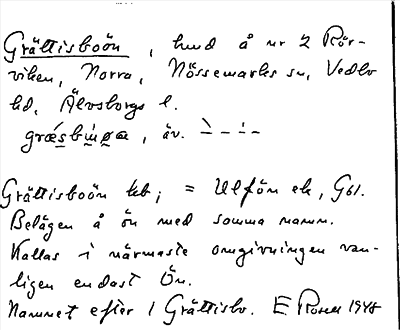 Grättisboön, hmd å nr 2 Rör-
viken, Norra, Nössemarks sn, Vedbo
hd, Älvsborgs l.
græ̀sbɯ́øa, äv. `–´–
Grättisboön kb; = Ulfön ek, G61.
Belägen å ön med samma namn.
Kallas i närmaste omgivningen van-
ligen endast Ön.
Namnet efter 1 Grättisbo. E 1948